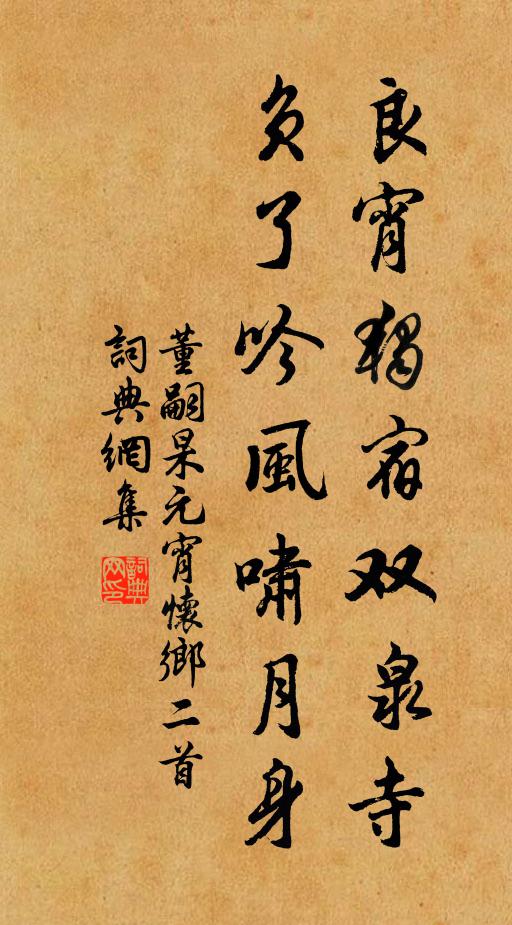 良宵独宿双泉寺
负了吟風嘯月身
董嗣杲元宵懷鄉二首
詞典網集
詞典网印